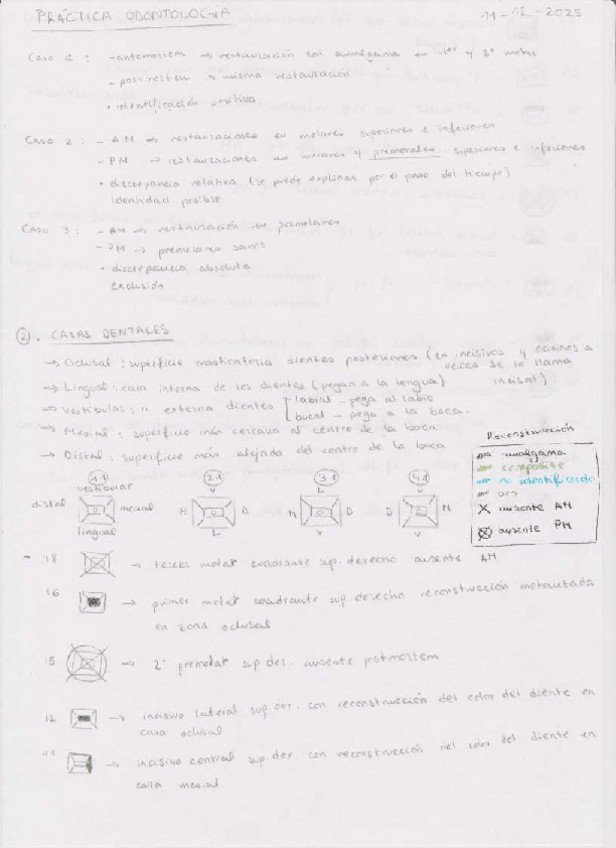 PRÁCTICA ODONTOLOGÍA 11-12-2025
Caso 1 : - antemortem → restauración con amalgama en 1er y 2º molar
- postmortem → misma restauración
• identificación positiva
Caso 2 : - AM → restauraciones en molares superiores e inferiores
- PM → restauraciones en molares y premolares superiores e inferiores
• discrepancia relativa (se puede explicar por el paso del tiempo)
identidad posible
Caso 3 : - AM → restauración en premolares
- PM → premolares sanos
• discrepancia absoluta
exclusión
② . CARAS DENTALES
→ Oclusal : superficie masticatoria dientes posteriores (en incisivos y caninos a veces se le llama incisal)
→ Lingual : cara interna de los dientes (pegan a la lengua)
→ Vestibular : " externa dientes labial - pega al labio
bucal - pega a la boca.
→ Mesial : superficie más cercana al centro de la boca
→ Distal : superficie más alejada del centro de la boca
Reconstrucción
amalgama
composite
no identificado
oro
X ausente AM
ausente PM
11 21 31 41
vestibular V L L
distal mesial M D M D D M
lingual L V V
- 18 → tercer molar cuadrante sup. derecho ausente AM
16 → primer molar cuadrante sup. derecho reconstrucción metalizada
en zona oclusal
15 → 2º premolar sup. der. ausente postmortem
12 → incisivo lateral sup. der. con reconstrucción del color del diente en
cara oclusal
11 → incisivo central sup. der con reconstrucción del color del diente en
cara mesial